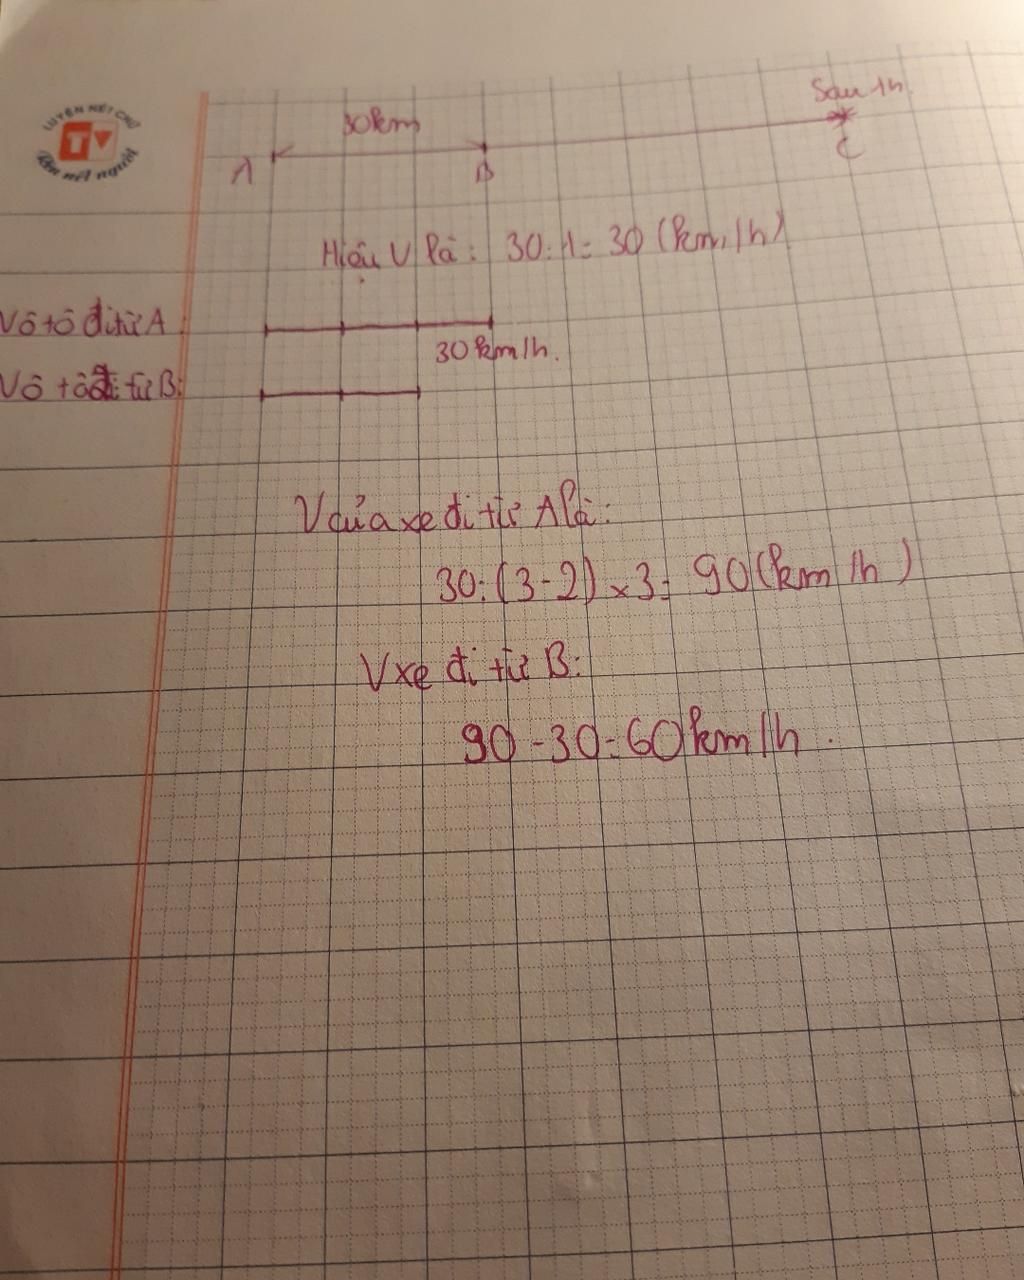 LUYỆN NÉT CHỮ
TV
Rèn nết người
30km
Sau 1h
A
B
C
Hiệu V là: 30:1=30 (km/h)
Vô tô đi từ A:
30km/h.
Vô tô đi từ B:
V của xe đi từ A là:
30:(3-2)x3= 90(km/h)
V xe đi từ B:
90-30=60km/h.